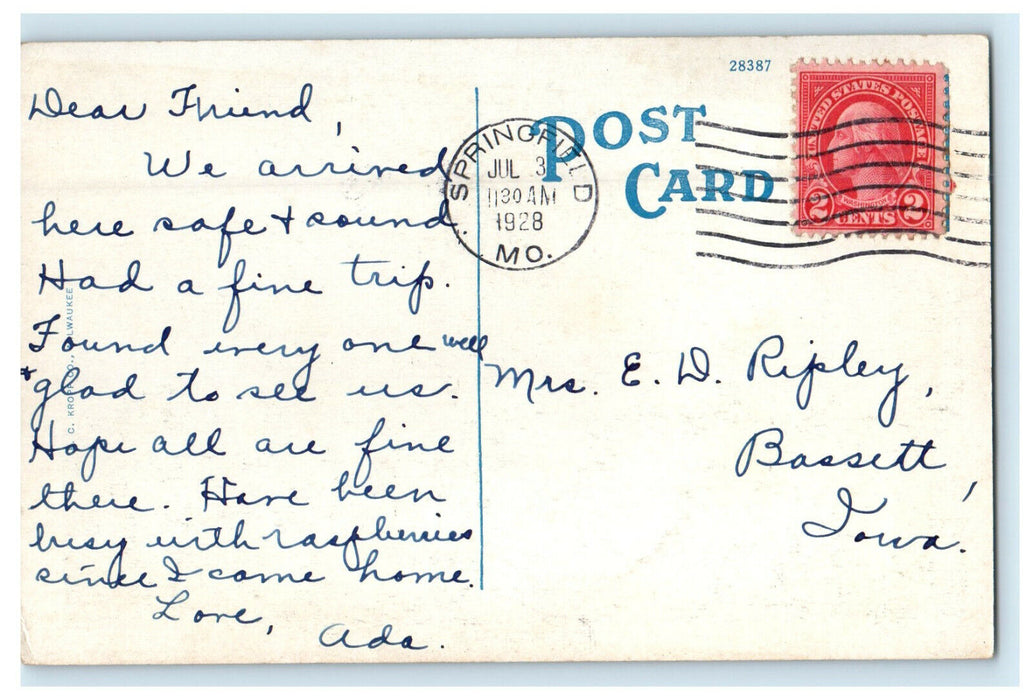 Dear Friend,
We arrived
here safe & sound.
Had a fine trip.
Found every one well
& glad to see us.
Hope all are fine
there. Have been
busy with raspberries
since I came home.
Love,
Ada.
C. KRO CO., MILWAUKEE
28387
POST
CARD
SPRINGFIELD
JUL 3
1130 AM
1928
MO.
UNITED STATES POSTAGE
WASHINGTON
2 CENTS 2
Mrs. E. D. Ripley,
Bassett,
Iowa.